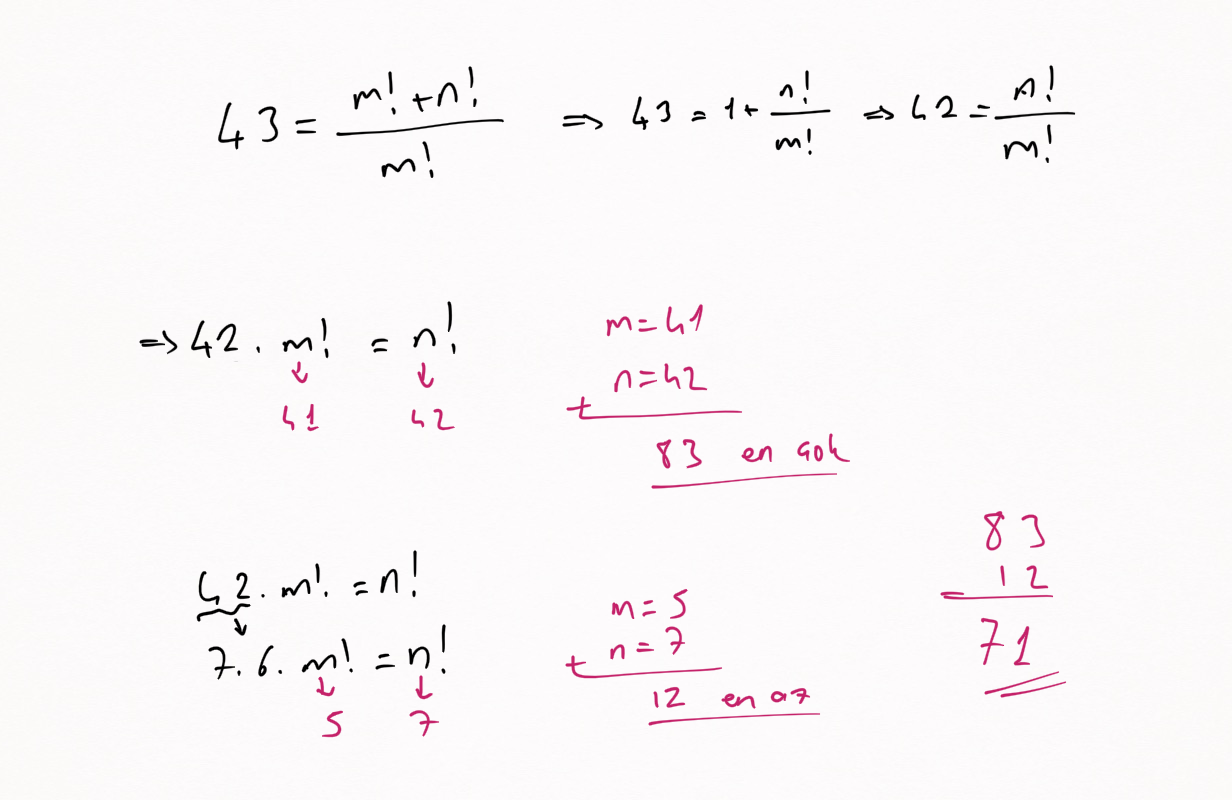 43 = (m! + n!) / m! ⇒ 43 = 1 + n! / m! ⇒ 42 = n! / m!
⇒ 42 . m! = n!
↓ ↓
41 42
m = 41
n = 42
+
83 en çok
42 . m! = n!
↓
7 . 6 . m! = n!
↓ ↓
5 7
m = 5
n = 7
+
12 en az
83
12
-
71